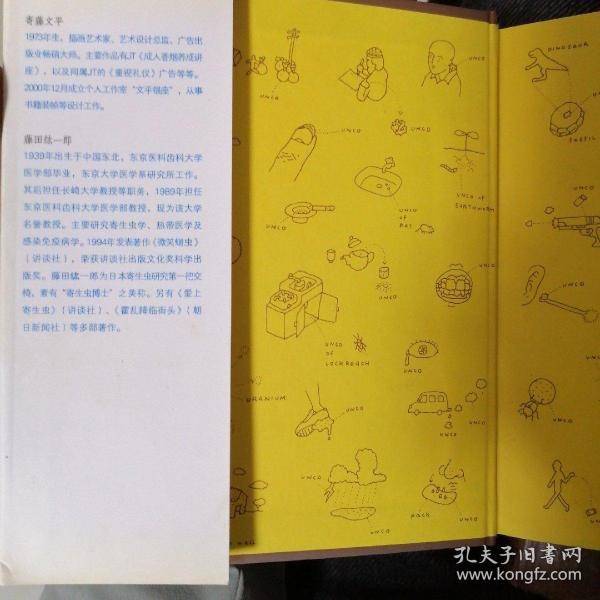 寄藤文平
1973年生，插画艺术家、艺术设计总监、广告出
版业畅销大师。主要作品有JT《成人香烟养成讲
座》，以及同属JT的《重视礼仪》广告等等。
2000年12月成立个人工作室“文平银座”，从事
书籍装帧等设计工作。
藤田紘一郎
1939年出生于中国东北，东京医科齿科大学
医学部毕业，东京大学医学系研究所工作。
其后担任长崎大学教授等职务，1989年担任
东京医科齿科大学医学部教授，现为该大学
名誉教授。主要研究寄生虫学、热带医学及
感染免疫病学。1994年发表著作《微笑蛔虫》
（讲谈社），荣获讲谈社出版文化奖科学出
版奖。藤田紘一郎为日本寄生虫研究第一把交
椅，素有“寄生虫博士”之美称。另有《爱上
寄生虫》（讲谈社）、《霍乱降临街头》（朝
日新闻社）等多部著作。
UNCO
UNCO
UNCO
DINOSAUR
FOSSIL
UNCO
UNCO
UNCO
OF
RAT
UNCO OF
EARTHWORM
UNCO
UNCO
UNCO
UNCO
UNCO
OF
COCKROACH
UNCO
URANIUM
UNCO
UNCO
UNCO
UNCO
UNCO
UNCO
UNCO
UNCO
孔夫子旧书网
www.kongfz.com